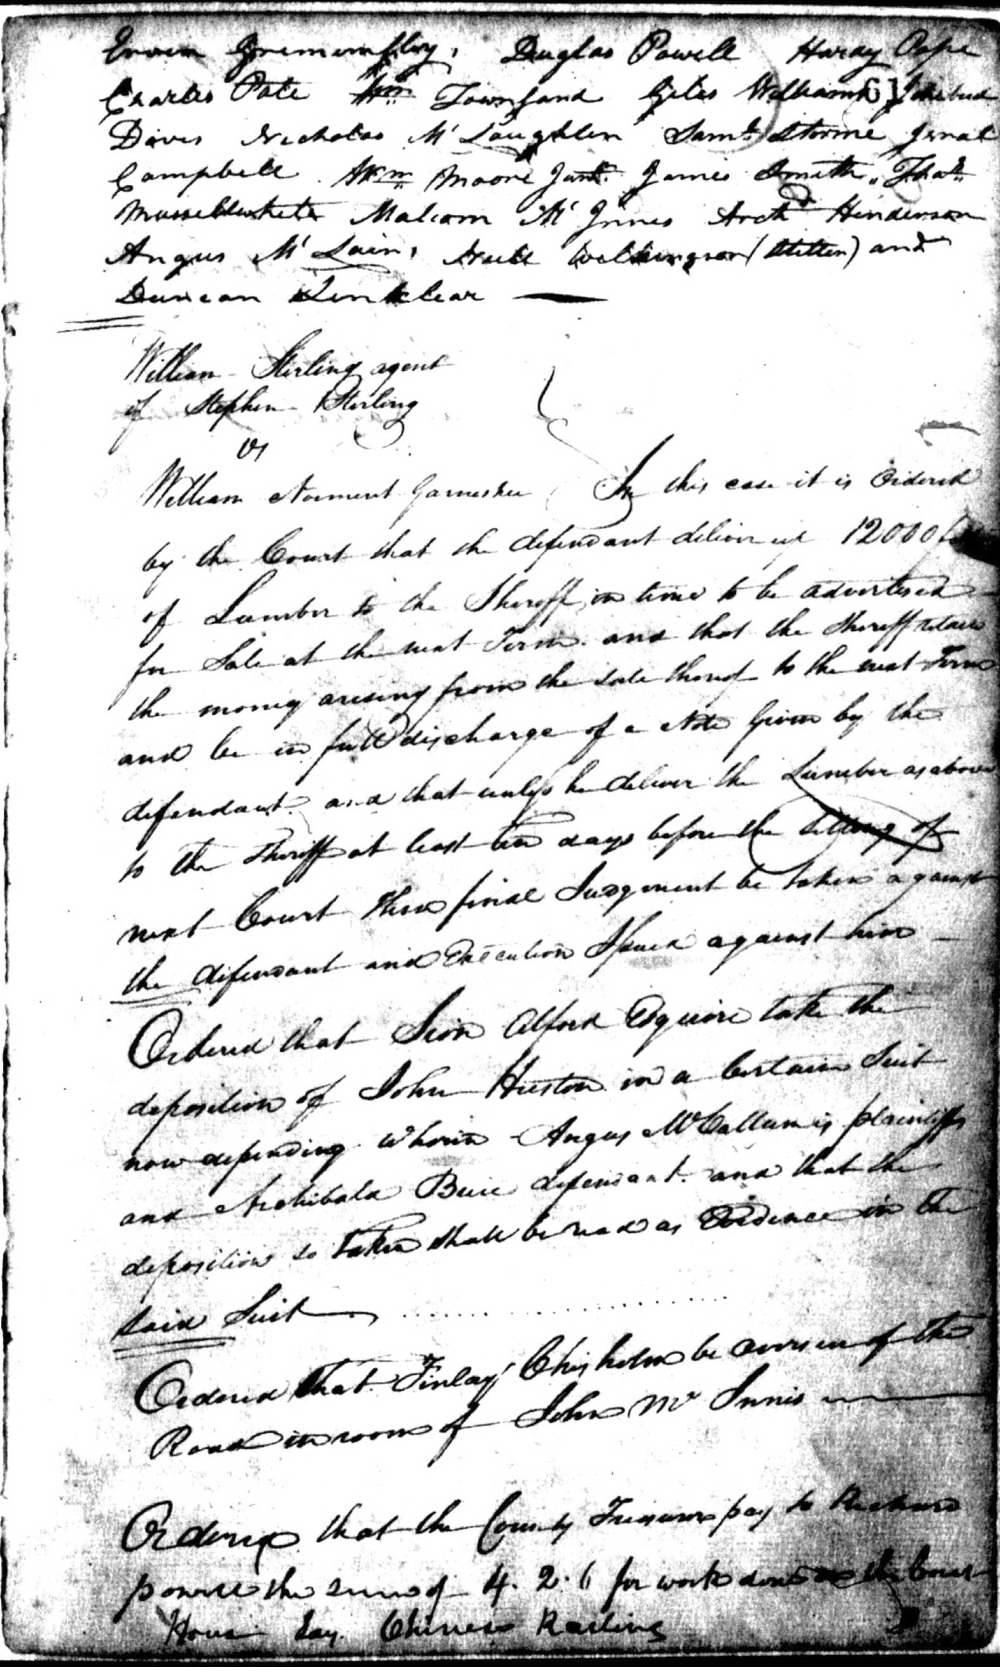 Duglas Powell Hardy Pope
Charles Pate Wm Townsand Giles Williams 61
Davis Nicholas Mc Laughlin Saml
Campbell Wm Moore James Smith
Malcom Mc Innes Archd Henderson
Angus Mc Lain, and
Duncan
William Stirling agent
of Stephen Stirling
vs
William Norment Garneshee In this case it is Ordered
by the Court that the defendant deliver up 12000
of Lumber to the Sheriff in time to be advertised
for Sale at the next Term and that the Sheriff retain
the money arising from the sale thereof to the next Term
and be in full discharge of a Note Given by the
defendant and that unless he deliver the Lumber as above
to the Sheriff at least ten days before the Setting of
next Court then final Judgement be taken against
the defendant and Execution Issued against him
Ordered that Sion Alford Esquire take the
deposition of John Huston in a Certain Suit
now depending wherin Angus McCallum is plaintiff
and Archibald Buie defendant and that the
deposition so taken shall be read as Evidence in the
said Suit
Ordered that Finlay Chisholm be overseer of the
Road in room of John Mc Innis
Ordered that the County Treasurer pay to Richard
Powell the sum of 4. 2. 6 for work done on the Court
House Say Chinese Railing